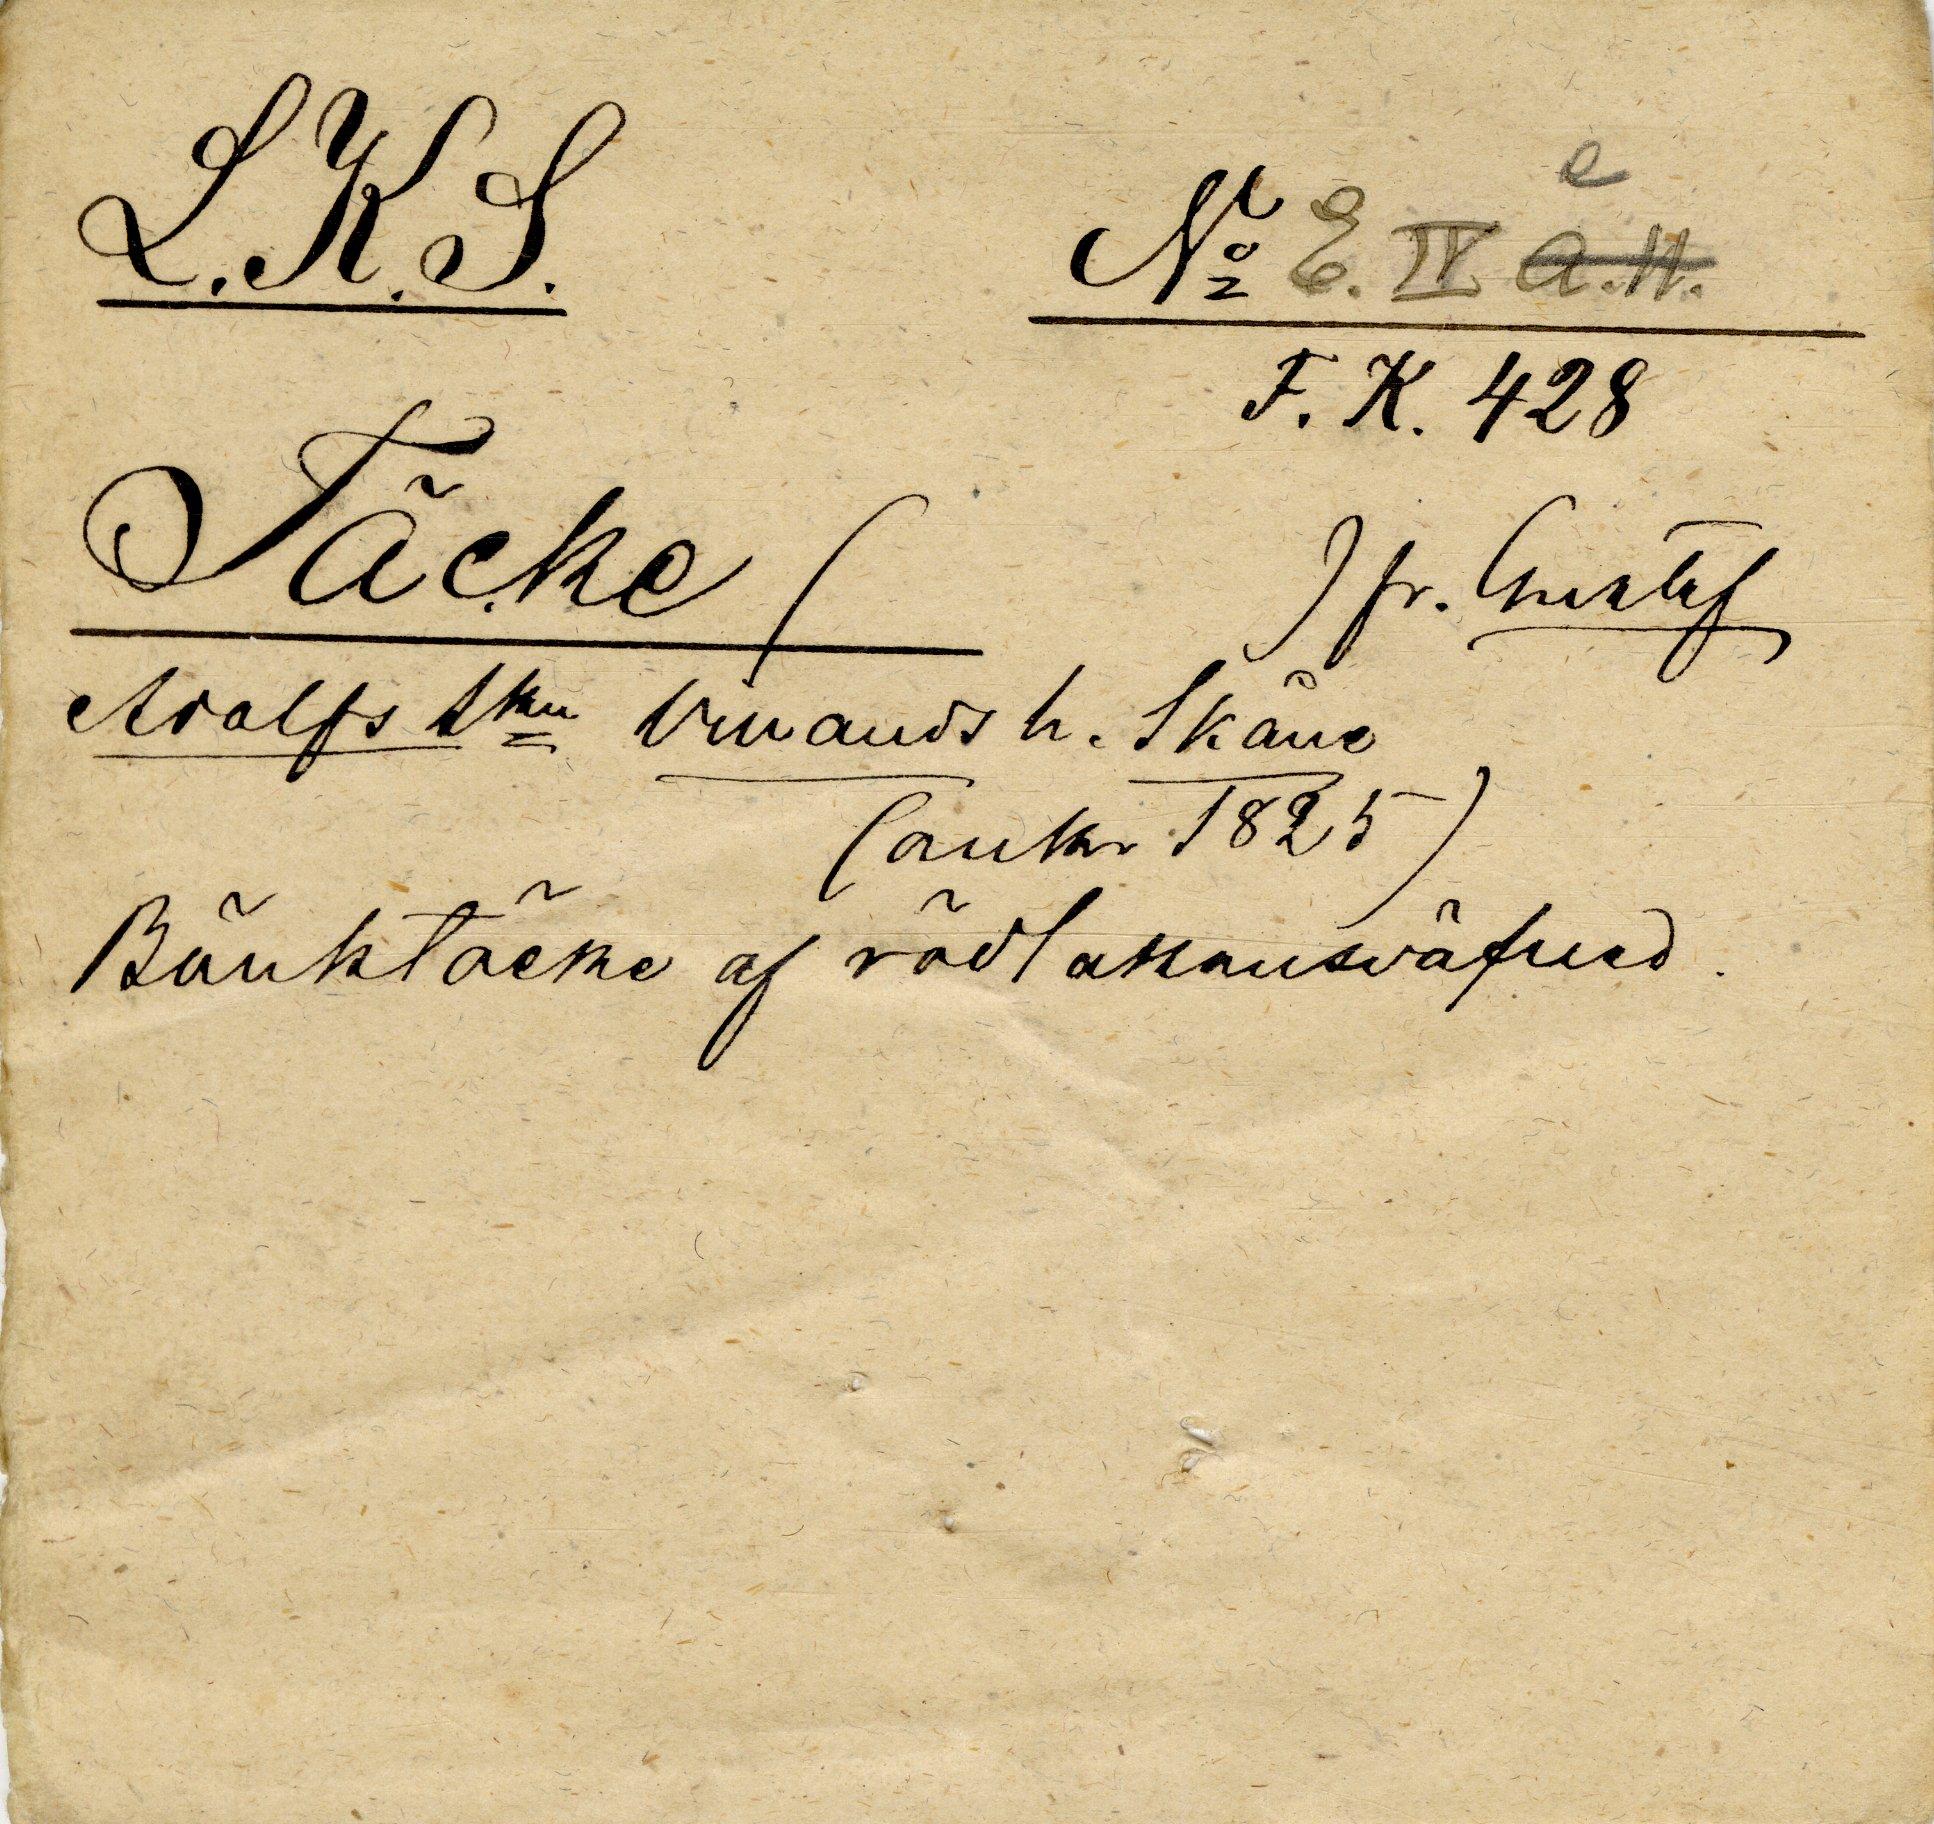 L.K.S.
№ E. IV a.H. e
F. K. 428
Täcke ( ) fr. Gustaf
Adolfs skn Villands h. Skåne
(omkr 1825)
Bänktäcke af rödlakansväfnad.